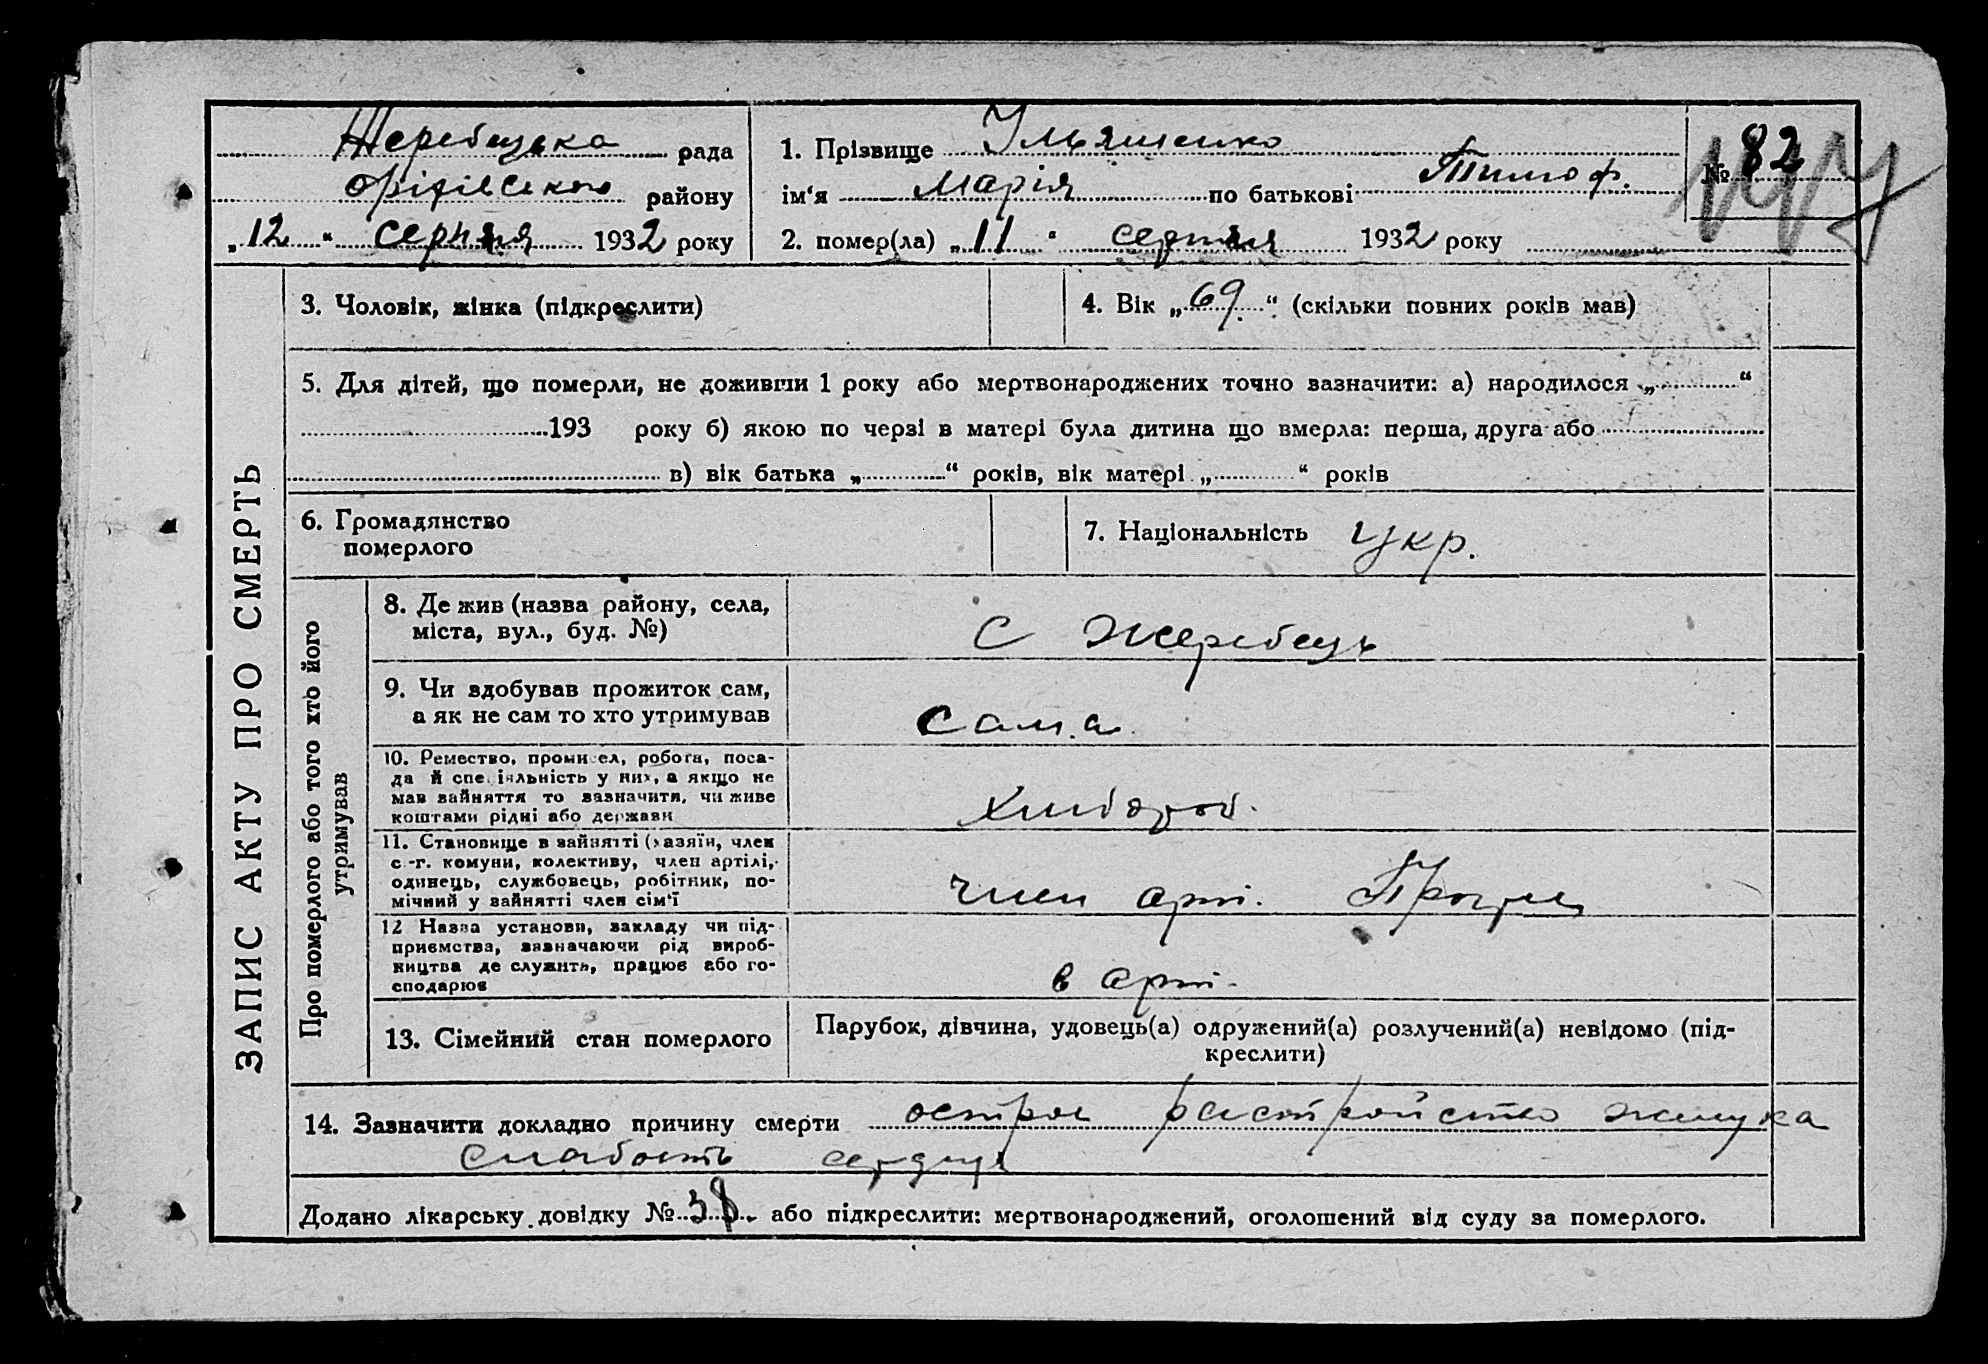 Жеребецька рада
Оріхівського району
„12“ серпня 1932 року
1. Прізвище Ульяшенко
ім‘я Марія по батькові Тимоф.
2. помер(ла) „11“ серпня 1932 року
№ 82
ЗАПИС АКТУ ПРО СМЕРТЬ
3. Чоловік, жінка (підкреслити)
4. Вік „69“ (скільки повних років мав)
5. Для дітей, що померли, не доживши 1 року або мертвонароджених точно зазначити: а) народилося „ “
193 року б) якою по черзі в матері була дитина що вмерла: перша, друга або
в) вік батька „ “ років, вік матері „ “ років
6. Громадянство
померлого
7. Національність Укр.
Про померлого або того хто його
утримував
8. Де жив (назва району, села,
міста, вул., буд. №)
С Жеребець
9. Чи здобував прожиток сам,
а як не сам то хто утримував
сама
10. Ремество, промисел, робота, поса-
да й спеціяльність у них, а якщо не
мав зайняття то зазначити, чи живе
коштами рідні або держави
хлібороб.
11. Становище в зайнятті (хазяїн, член
с.-г. комуни, колективу, член артілі,
одинець, службовець, робітник, по-
мічний у зайнятті член сім‘ї
член арт.
12 Назва установи, закладу чи під-
приємства, зазначаючи рід вироб-
ництва де служить, працює або го-
сподарює
в арт.
13. Сімейний стан померлого
Парубок, дівчина, удовець(а) одружений(а) розлучений(а) невідомо (під-
креслити)
14. Зазначити докладно причину смерти острое расстройство желудка
слабость сердца
Додано лікарську довідку № 38 або підкреслити: мертвонароджений, оголошений від суду за померлого.